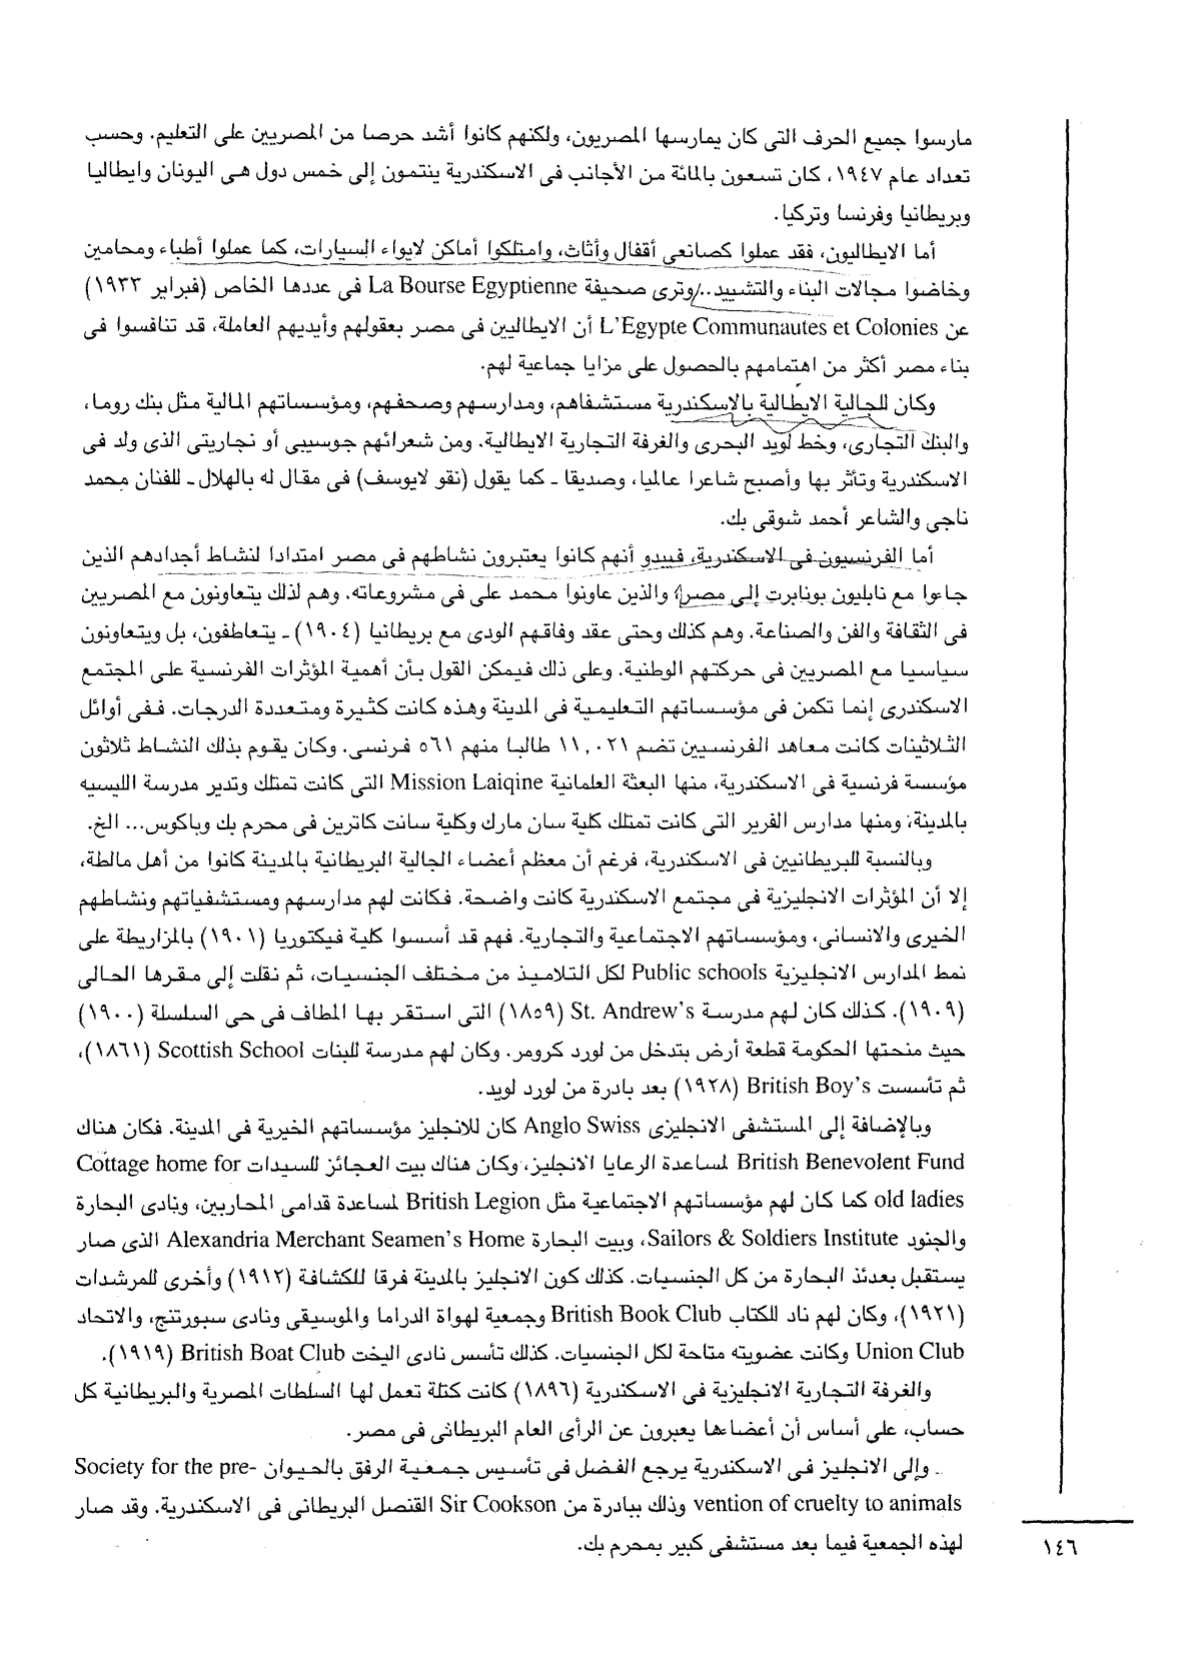 مارسوا جميع الحرف التى كان يمارسها المصريون، ولكنهم كانوا أشد حرصا من المصريين على التعليم. وحسب
تعداد عام ١٩٤٧، كان تسعون بالمائة من الأجانب فى الاسكندرية ينتمون إلى خمس دول هى اليونان وايطاليا
وبريطانيا وفرنسا وتركيا.
أما الايطاليون، فقد عملوا كصانعى أقفال وأثاث، وامتلكوا أماكن لايواء السيارات، كما عملوا أطباء ومحامين
وخاضوا مجالات البناء والتشييد.. وترى صحيفة La Bourse Egyptienne فى عددها الخاص (فبراير ١٩٣٣)
عن L'Egypte Communautes et Colonies أن الايطاليين فى مصر بعقولهم وأيديهم العاملة، قد تنافسوا فى
بناء مصر أكثر من اهتمامهم بالحصول على مزايا جماعية لهم.
وكان للجالية الايطالية بالاسكندرية مستشفاهم، ومدارسهم وصحفهم، ومؤسساتهم المالية مثل بنك روما،
والبنك التجارى، وخط لويد البحرى والغرفة التجارية الايطالية. ومن شعرائهم جوسيبى أو نجاريتى الذى ولد فى
الاسكندرية وتأثر بها وأصبح شاعرا عالميا، وصديقا ـ كما يقول (نقو لايوسف) فى مقال له بالهلال ـ للفنان محمد
ناجى والشاعر أحمد شوقى بك.
أما الفرنسيون فى الاسكندرية، فيبدو أنهم كانوا يعتبرون نشاطهم فى مصر امتدادا لنشاط أجدادهم الذين
جاءوا مع نابليون بونابرت إلى مصر، والذين عاونوا محمد على فى مشروعاته. وهم لذلك يتعاونون مع المصريين
فى الثقافة والفن والصناعة. وهم كذلك وحتى عقد وفاقهم الودى مع بريطانيا (١٩٠٤) ـ يتعاطفون، بل ويتعاونون
سياسيا مع المصريين فى حركتهم الوطنية. وعلى ذلك فيمكن القول بأن أهمية المؤثرات الفرنسية على المجتمع
الاسكندرى إنما تكمن فى مؤسساتهم التعليمية فى المدينة وهذه كانت كثيرة ومتعددة الدرجات. ففى أوائل
الثلاثينات كانت معاهد الفرنسيين تضم ١١,٠٢١ طالبا منهم ٥٦١ فرنسى. وكان يقوم بذلك النشاط ثلاثون
مؤسسة فرنسية فى الاسكندرية، منها البعثة العلمانية Mission Laiqine التى كانت تمتلك وتدير مدرسة الليسيه
بالمدينة، ومنها مدارس الفرير التى كانت تمتلك كلية سان مارك وكلية سانت كاترين فى محرم بك وباكوس... الخ.
وبالنسبة للبريطانيين فى الاسكندرية، فرغم أن معظم أعضاء الجالية البريطانية بالمدينة كانوا من أهل مالطة،
إلا أن المؤثرات الانجليزية فى مجتمع الاسكندرية كانت واضحة. فكانت لهم مدارسهم ومستشفياتهم ونشاطهم
الخيرى والانسانى، ومؤسساتهم الاجتماعية والتجارية. فهم قد أسسوا كلية فيكتوريا (١٩٠١) بالمزاريطة على
نمط المدارس الانجليزية Public schools لكل التلاميذ من مختلف الجنسيات، ثم نقلت إلى مقرها الحالى
(١٩٠٩). كذلك كان لهم مدرسة St. Andrew's (١٨٥٩) التى استقر بها المطاف فى حى السلسلة (١٩٠٠)
حيث منحتها الحكومة قطعة أرض بتدخل من لورد كرومر. وكان لهم مدرسة للبنات Scottish School (١٨٦١)،
ثم تأسست British Boy's (١٩٢٨) بعد بادرة من لورد لويد.
وبالإضافة إلى المستشفى الانجليزى Anglo Swiss كان للانجليز مؤسساتهم الخيرية فى المدينة. فكان هناك
British Benevolent Fund لمساعدة الرعايا الانجليز، وكان هناك بيت العجائز للسيدات Cottage home for
old ladies كما كان لهم مؤسساتهم الاجتماعية مثل British Legion لمساعدة قدامى المحاربين، ونادى البحارة
والجنود Sailors & Soldiers Institute، وبيت البحارة Alexandria Merchant Seamen's Home الذى صار
يستقبل بعدئذ البحارة من كل الجنسيات. كذلك كون الانجليز بالمدينة فرقا للكشافة (١٩١٢) وأخرى للمرشدات
(١٩٢١)، وكان لهم ناد للكتاب British Book Club وجمعية لهواة الدراما والموسيقى ونادى سبورتنج، والاتحاد
Union Club وكانت عضويته متاحة لكل الجنسيات. كذلك تأسس نادى اليخت British Boat Club (١٩١٩).
والغرفة التجارية الانجليزية فى الاسكندرية (١٨٩٦) كانت كتلة تعمل لها السلطات المصرية والبريطانية كل
حساب، على أساس أن أعضاءها يعبرون عن الرأى العام البريطانى فى مصر.
وإلى الانجليز فى الاسكندرية يرجع الفضل فى تأسيس جمعية الرفق بالحيوان Society for the pre-
vention of cruelty to animals وذلك ببادرة من Sir Cookson القنصل البريطانى فى الاسكندرية. وقد صار
لهذه الجمعية فيما بعد مستشفى كبير بمحرم بك.
١٤٦